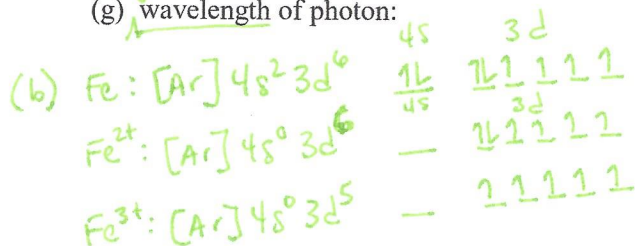 (g) wavelength of photon:
4s 3d
(b) Fe: [Ar] 4s² 3d⁶ 1L 1L 1 1 1 1
4s 3d
Fe²⁺: [Ar] 4s⁰ 3d⁶ _ 1L 1 1 1 1
Fe³⁺: [Ar] 4s⁰ 3d⁵ _ 1 1 1 1 1